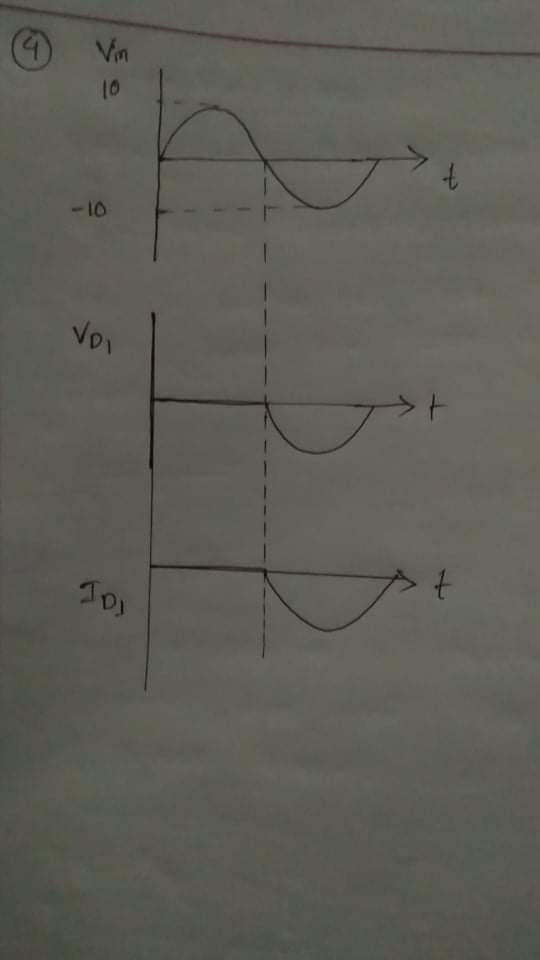 4 Vin
10
t
-10
VD1
t
ID1
t